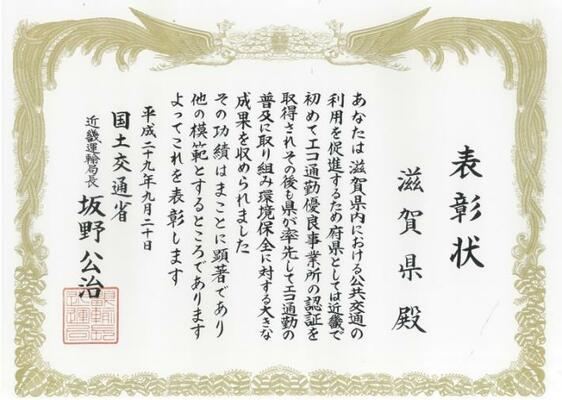 表彰状
滋賀県殿
あなたは滋賀県内における公共交通の
利用を促進するため府県としては近畿で
初めてエコ通勤優良事業所の認証を
取得されその後も県が率先してエコ通勤の
普及に取り組み環境保全に対する大きな
成果を収められました
その功績はまことに顕著であり
他の模範とするところであります
よってこれを表彰します
平成二十九年九月二十日
国土交通省
近畿運輸局長 坂野公治